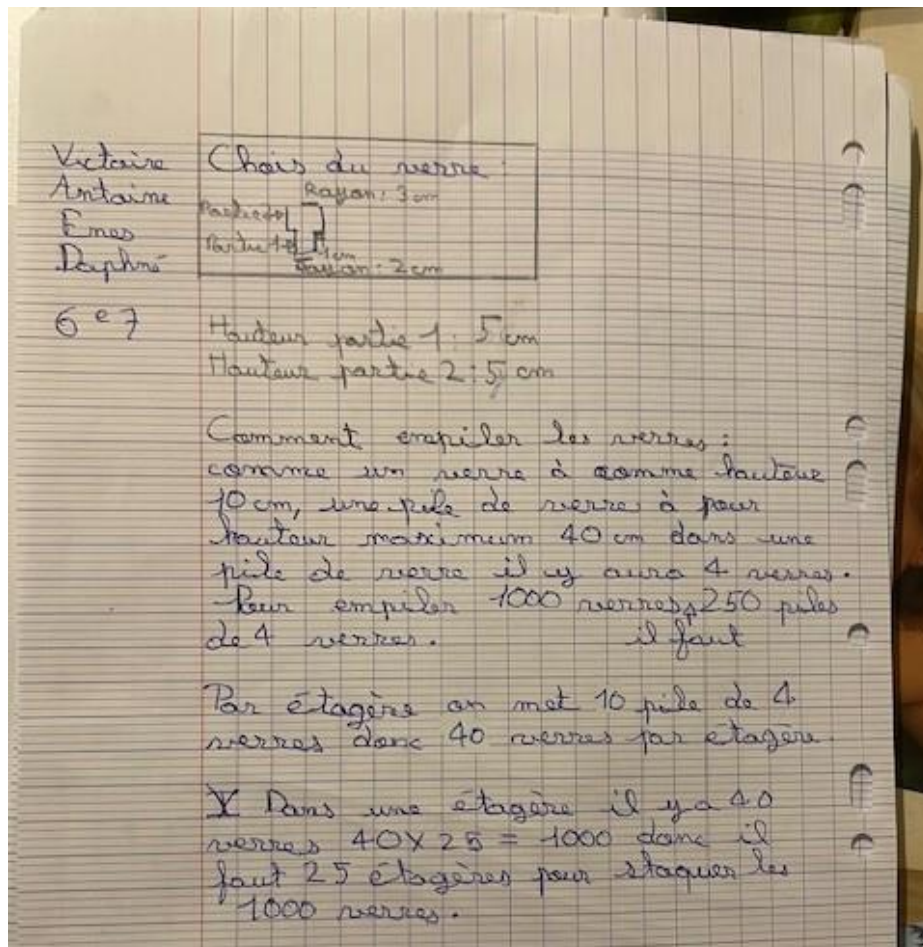 Victoire
Antoine
Enes
Daphné
6e7
Chois du verre :
Rayon : 3 cm
Partie 1
1cm
Rayon : 2 cm
Hauteur partie 1 : 5 cm
Hauteur partie 2 : 5 cm
Comment empiler les verres :
comme un verre à comme hauteur
10 cm, une pile de verre à pour
hauteur maximum 40 cm dans une
pile de verre il y aura 4 verres.
Pour empiler 1000 verres, 250 piles
de 4 verres. il faut
Par étagère on met 10 pile de 4
verres donc 40 verres par étagère.
Dans une étagère il y a 40
verres 40 X 25 = 1000 donc il
faut 25 étagères pour staquer les
1000 verres.